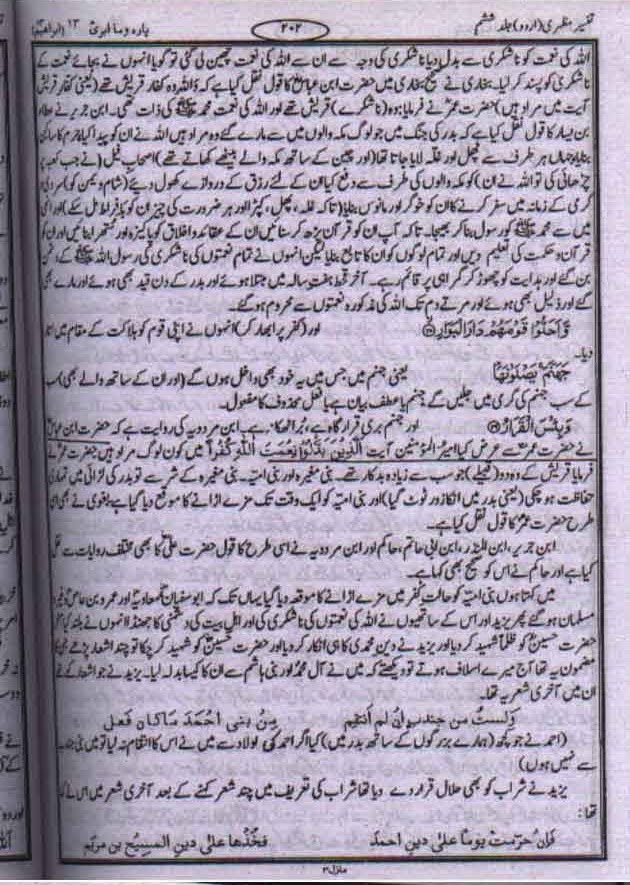 تفسیر مظہری (اردو) جلد ششم
۲۰۲
پارہ وما ابرئ ۱۳ (ابراھیم)
اللہ کی نعمت کو ناشکری سے بدل دیا ناشکری کی وجہ سے ان سے اللہ کی نعمت چھین لی گئی تو گویا انہوں نے بجائے نعمت کے
ناشکری کو پسند کر لیا۔ بخاری نے صحیح بخاری میں حضرت ابن عباسؓ کا قول نقل کیا ہے کہ واللہ وہ کفار قریش تھے (یعنی کفار قریش
آیت میں مراد ہیں) حضرت عمرؓ نے فرمایا: وہ (ناشکرے) قریش تھے اور اللہ کی نعمت محمد ﷺ کی ذات تھی۔ ابن جریر نے عطاء
بن یسار کا قول نقل کیا ہے کہ بدر کی جنگ میں جو لوگ مکہ والوں میں سے مارے گئے وہ مراد ہیں اللہ نے ان کو پیدا کیا، حرم کا ساکن
بنایا جہاں ہر طرف سے پھل اور غلہ لایا جاتا تھا (اور چین کے ساتھ مکہ والے بیٹھے کھاتے تھے) اصحاب فیل (نے جب کعبہ پر
چڑھائی کی تو اللہ نے ان) کو مکہ والوں کی طرف سے دفع کیا ان کے لئے رزق کے دروازے کھول دیئے (شام و یمن کو) سردی
گرمی کے زمانہ میں سفر کرنے کا ان کو خوگر اور مانوس بنایا (تاکہ غلہ، پھل، کپڑا اور ہر ضرورت کی چیز ان کو بافراط مل سکے) اور انہی
میں سے محمد ﷺ کو رسول بنا کر بھیجا۔ تاکہ آپ ان کو قرآن پڑھ کر سنائیں ان کے عقائد و اخلاق کو پاکیزہ اور ستھرا بنائیں اور ان کو
قرآن و حکمت کی تعلیم دیں اور تمام لوگوں کو ان کا تابع بنایا لیکن انہوں نے تمام نعمتوں کی ناشکری کی رسول اللہ ﷺ کے دشمن
بن گئے اور ہدایت کو چھوڑ کر گمراہی پر قائم رہے۔ آخر قحط ہفت سالہ میں مبتلا ہوئے اور بدر کے دن قید بھی ہوئے اور مارے بھی
گئے اور ذلیل بھی ہوئے اور مرتے دم تک اللہ کی مذکورہ نعمتوں سے محروم ہو گئے۔
وَّاَحَلُّوْا قَوْمَهُمْ دَارَ الْبَوَارِ اور (کفر پر ابھار کر) انہوں نے اپنی قوم کو ہلاکت کے مقام میں اتار
دیا۔
جَهَنَّمَ يَصْلَوْنَهَا یعنی جہنم میں جس میں یہ خود بھی داخل ہوں گے (اور ان کے ساتھ والے بھی) سب
کے سب جہنم کی گرمی میں جلیں گے جہنم یا عطف بیان ہے یا فعل محذوف کا مفعول۔
وَبِئْسَ الْقَرَارُ اور جہنم بری قرار گاہ ہے، برا ٹھکانہ ہے۔ ابن مردویہ کی روایت ہے کہ حضرت ابن عباسؓ
نے حضرت عمرؓ سے عرض کیا امیر المؤمنین آیت اَلَّذِيْنَ بَدَّلُوْا نِعْمَتَ اللّٰهِ كُفْرًا میں کون لوگ مراد ہیں حضرت عمرؓ نے
فرمایا قریش کے وہ دو (قبیلے) جو سب سے زیادہ بدکار تھے۔ بنی مغیرہ اور بنی امیہ۔ بنی مغیرہ کے شر سے تو بدر کی لڑائی میں تمہاری
حفاظت ہو چکی (یعنی بدر میں انکا زور ٹوٹ گیا) اور بنی امیہ کو ایک وقت تک مزے اڑانے کا موقع دیا گیا ہے بغوی نے بھی اسی
طرح حضرت عمرؓ کا قول نقل کیا ہے۔
ابن جریر، ابن المنذر، ابن ابی حاتم، حاکم اور ابن مردویہ نے اسی طرح کا قول حضرت علیؓ کا بھی مختلف روایات سے نقل
کیا ہے اور حاکم نے اس کو صحیح بھی کہا ہے۔
میں کہتا ہوں بنی امیہ کو حالت کفر میں مزے اڑانے کا موقعہ دیا گیا یہاں تک کہ ابو سفیانؓ، معاویہؓ اور عمرو بن عاصؓ وغیرہ
مسلمان ہو گئے پھر یزید اور اس کے ساتھیوں نے اللہ کی نعمتوں کی ناشکری کی اور اہل بیت کی دشمنی کا جھنڈا انہوں نے بلند کیا آخر
حضرت حسینؓ کو ظلماً شہید کر دیا اور یزید نے دین محمدی کا ہی انکار کر دیا اور حضرت حسینؓ کو شہید کر چکا تو چند اشعار پڑھے جن کا
مضمون یہ تھا آج میرے اسلاف ہوتے تو دیکھتے کہ میں نے آل محمد اور بنی ہاشم سے ان کا کیسا بدلہ لیا۔ یزید نے جو اشعار کہے تھے
ان میں آخری شعر یہ تھا۔
وَلَستُ من جندبِ ان لم اَنتَقِم مِن بنی اَحمَدَ مَاکانَ فَعل
(احمد نے جو کچھ (ہمارے بزرگوں کے ساتھ بدر میں) کیا اگر احمد کی اولاد سے میں نے اس کا انتقام نہ لیا تو میں بنی جندب
سے نہیں ہوں)
یزید نے شراب کو بھی حلال قرار دے دیا تھا شراب کی تعریف میں چند شعر کہنے کے بعد آخری شعر میں اس نے کہا
تھا:
فَاِن حرّمت یومًا علیٰ دینِ احمد فخُذها علیٰ دینِ المسیحِ بنِ مریَم
منزل ۳